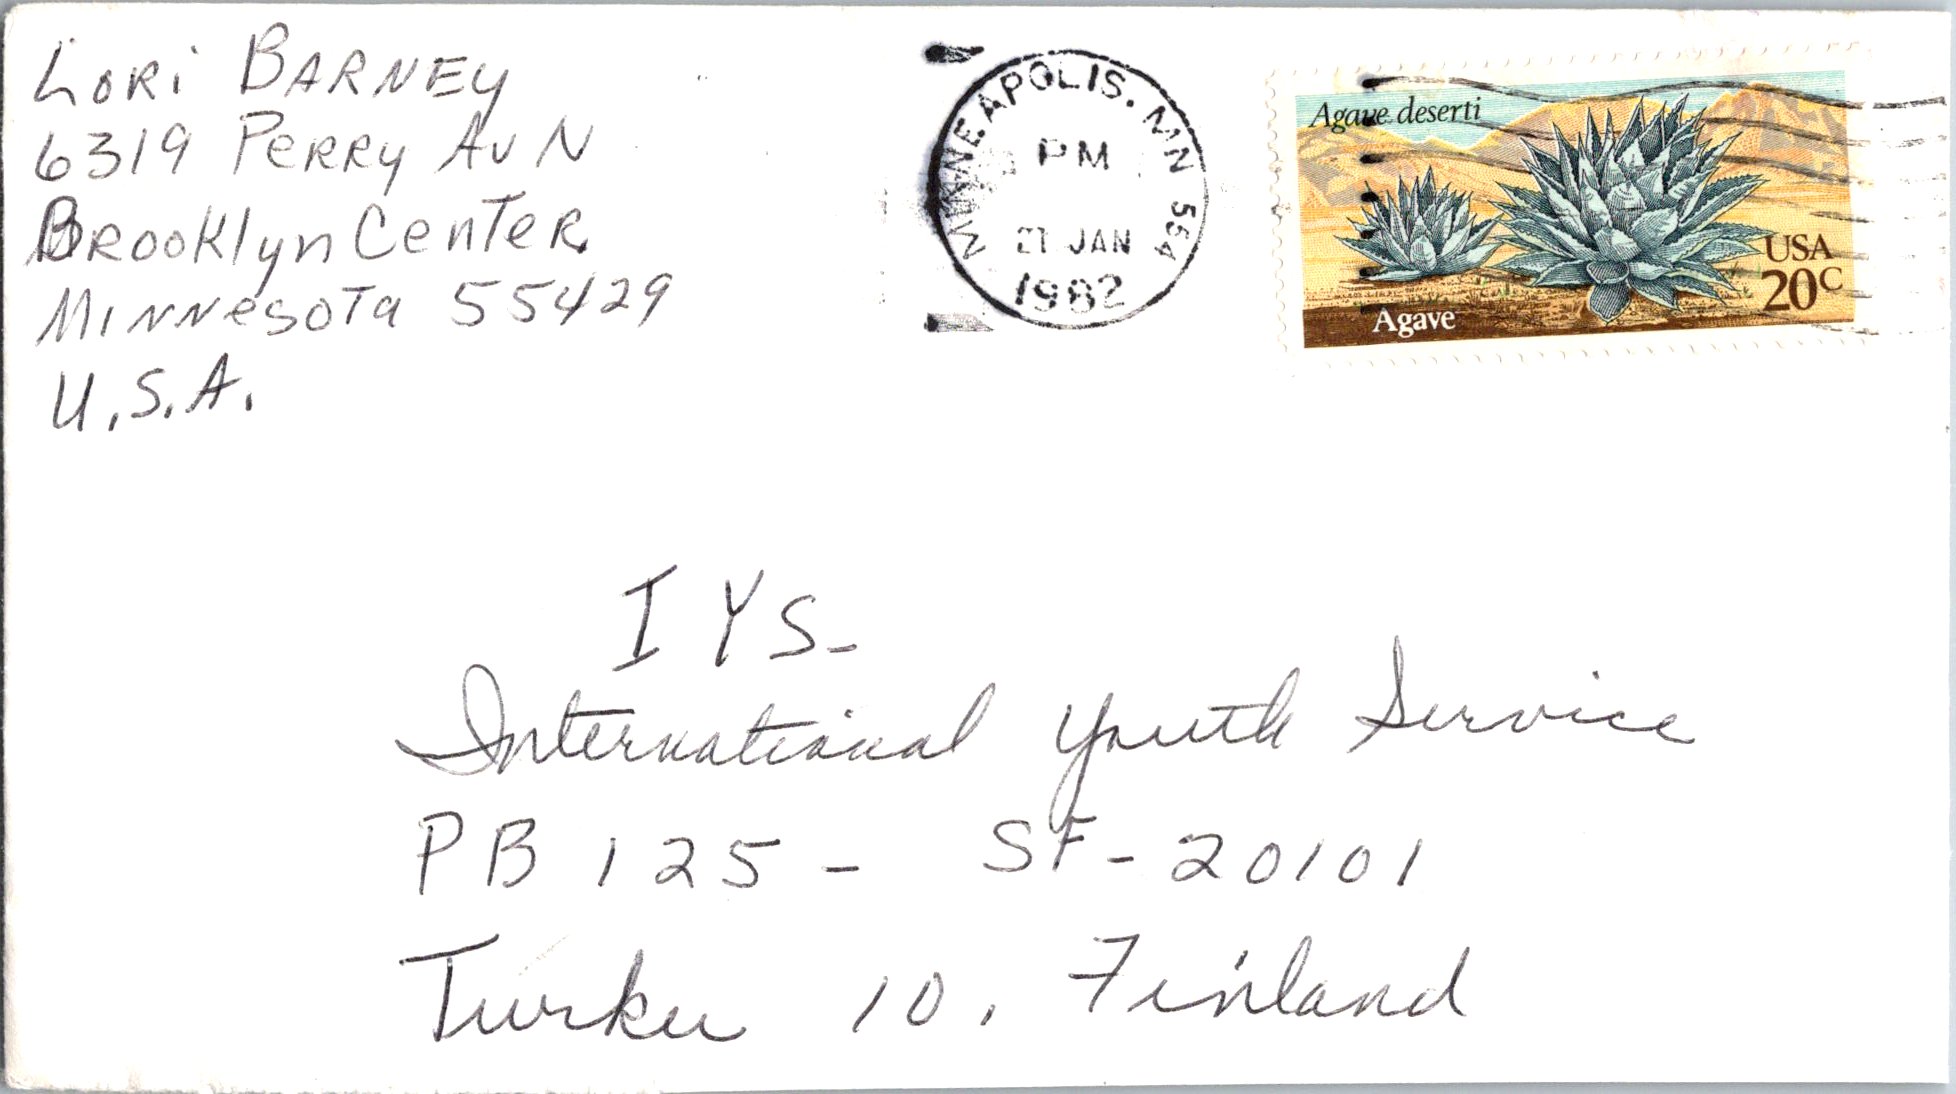 Lori Barney
6319 Perry Av N
Brooklyn Center
Minnesota 55429
U.S.A.
MINNEAPOLIS. MN 554
PM
21 JAN
1982
Agave deserti
USA
20c
Agave
IYS-
International Youth Service
PB 125 - SF-20101
Turku 10, Finland